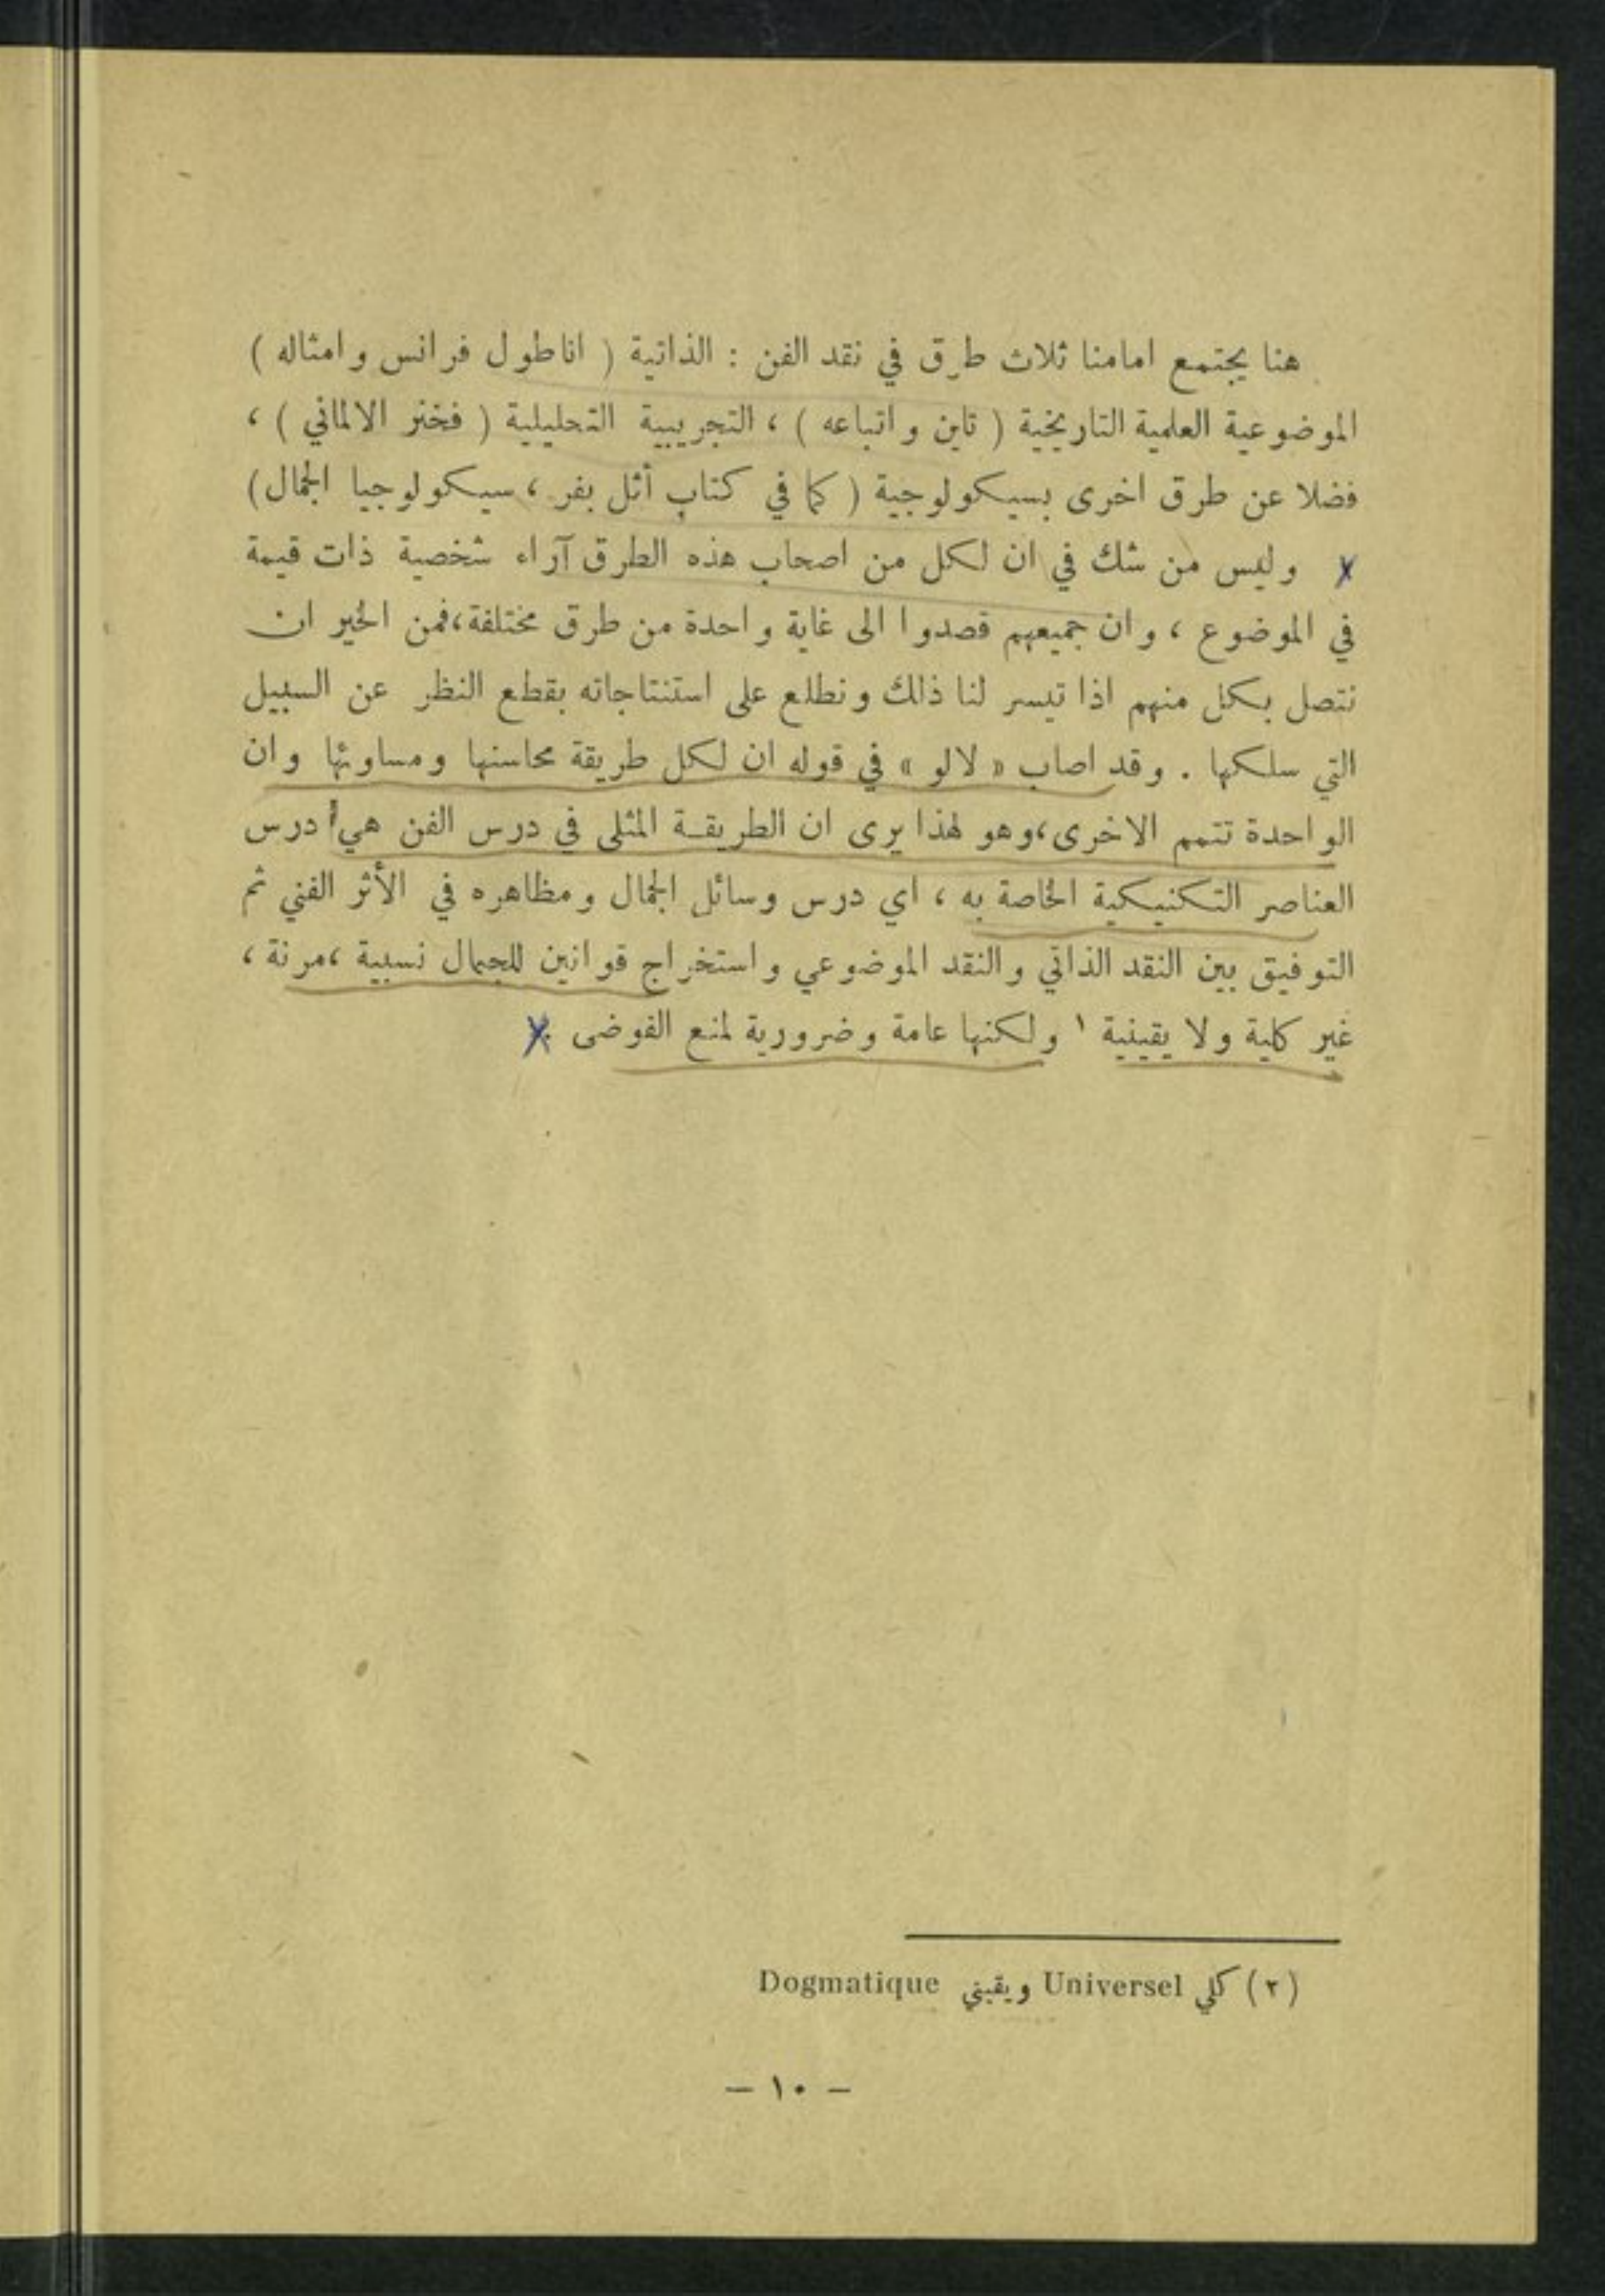 هنا يجتمع امامنا ثلاث طرق في نقد الفن : الذاتية ( اناطول فرانس وامثاله )
الموضوعية العلمية التاريخية ( تاين واتباعه ) ، التجريبية التحليلية ( فخنر الالماني ) ،
فضلا عن طرق اخرى بسيكولوجية ( كما في كتاب أثل بفر ، سيكولوجيا الجمال )
وليس من شك في ان لكل من اصحاب هذه الطرق آراء شخصية ذات قيمة
في الموضوع ، وان جميعهم قصدوا الى غاية واحدة من طرق مختلفة ، فمن الخير ان
نتصل بكل منهم اذا تيسر لنا ذلك ونطلع على استنتاجاته بقطع النظر عن السبيل
التي سلكها . وقد اصاب « لالو » في قوله ان لكل طريقة محاسنها ومساوئها وان
الواحدة تتمم الاخرى ، وهو لهذا يرى ان الطريقة المثلى في درس الفن هي درس
العناصر التكنيكية الخاصة به ، اي درس وسائل الجمال ومظاهره في الأثر الفني ثم
التوفيق بين النقد الذاتي والنقد الموضوعي واستخراج قوانين للجمال نسبية ، مرنة ،
غير كلية ولا يقينية ١ ولكنها عامة وضرورية لمنع الفوضى .
(٢) كلي Universel ويقيني Dogmatique
— ١٠ —